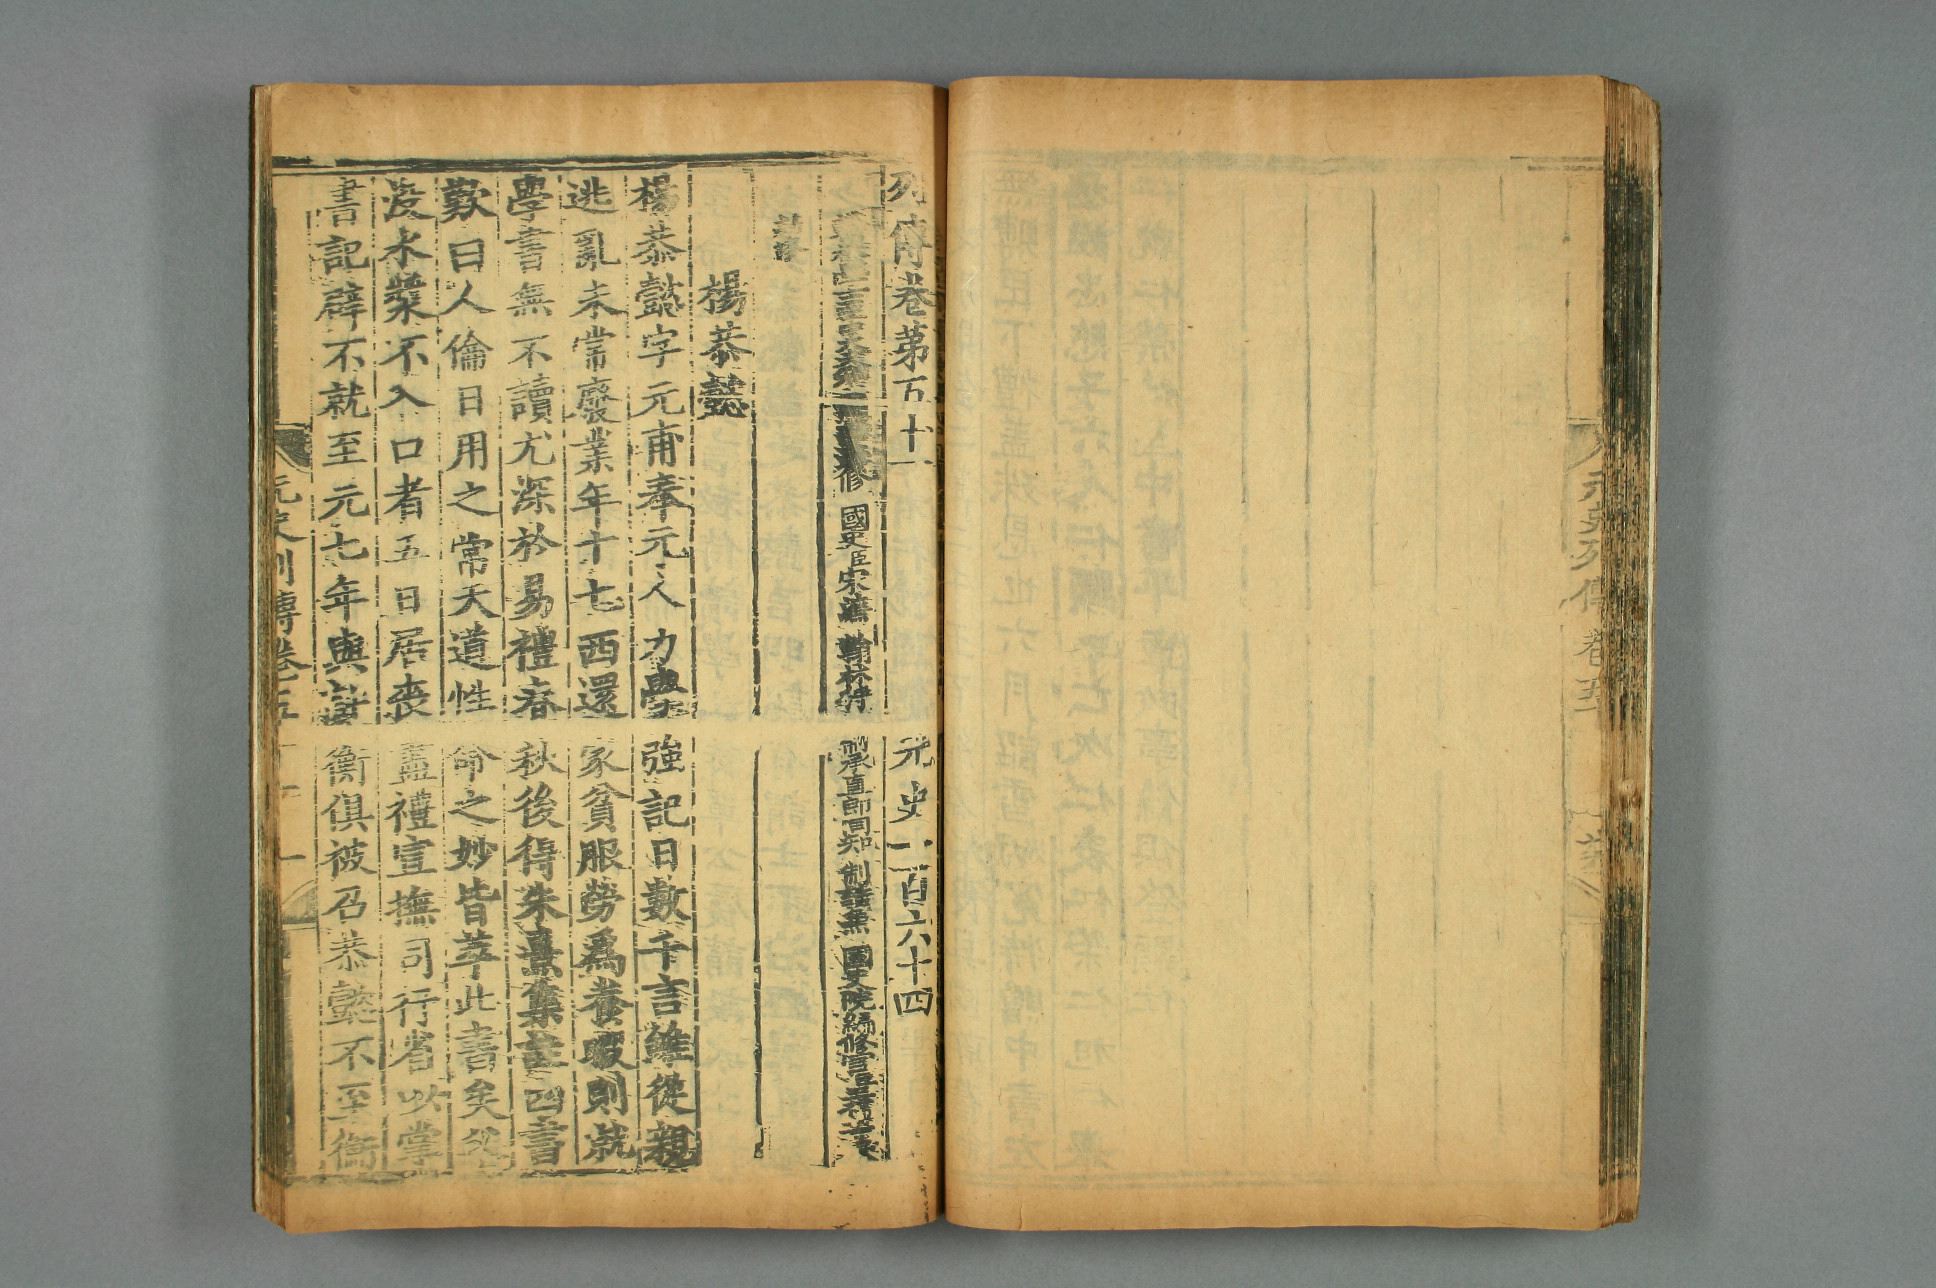 列傳卷第五十一　元史一百六十四
修　國史臣宋濂　翰林待
制承直郎同知制誥兼　國史院編修官
楊恭懿
楊恭懿字元甫奉元人力學強記日數千言雖從親
逃亂未嘗廢業年十七西還家貧服勞爲養暇則就
學書無不讀尤深於易禮春秋後得朱熹集註四書
歎曰人倫日用之常天道性命之妙皆萃此書矣父
沒水漿不入口者五日居喪盡禮宣撫司行省以掌
書記辟不就至元七年與許衡俱被召恭懿不至衡
元史列傳卷五十一
元史列傳卷五十